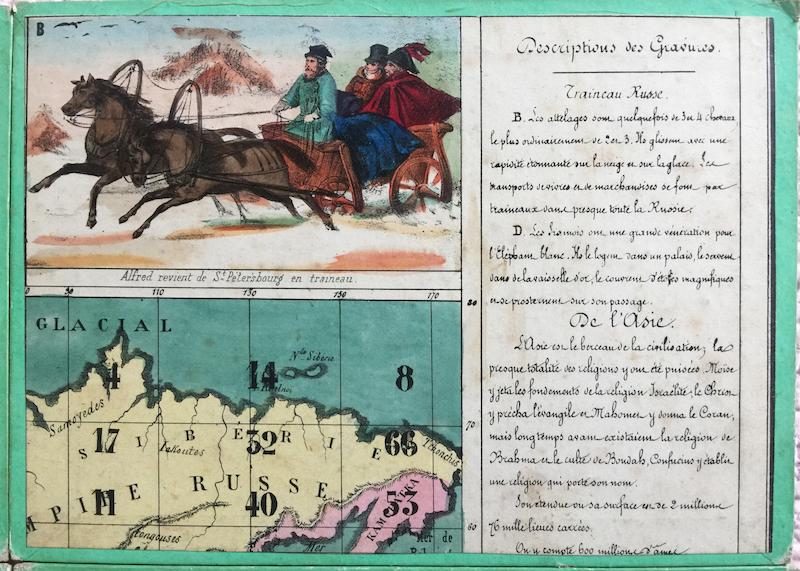 B
Alfred revient de St Pétersbourg en traineau.
30 110 130 150 170
80
70
60
GLACIAL
Nlle Sibérie
4 14 8
Samoyèdes
17 32 66
SIBERIE
Iakoutes
Tchouchis
EMPIRE RUSSE
11 40 53
KAMTCHATKA
Tongouses
Mer
Mer de
Descriptions des Gravures.
Traineau Russe.
B. Les attelages sont quelquefois de 3 ou 4 chevaux,
le plus ordinairement de 2 et 3. Ils glissent avec une
rapidité étonnante sur la neige et sur la glace. Les
transports de vivres et de marchandises se font par
traineaux dans presque toute la Russie.
D. Les Siamois ont une grande vénération pour
l'Eléphant blanc. Ils le logent dans un palais, le servent
dans de la vaisselle d'or, le couvrent d'étoffes magnifiques
et se prosternent sur son passage.
De l'Asie.
L'Asie est le berceau de la civilisation; la
presque totalité des religions y ont été puisées. Moïse
y jeta les fondements de la religion Israélite, le Christ
y prêcha l'évangile et Mahomet y donna le Coran,
mais longtemps avant existaient la religion de
Brahma et le culte de Boudah, Confucius y établit
une religion qui porte son nom.
Son étendue ou sa surface est de 2 millions
76 mille lieues carrées.
On y compte 600 millions d'âmes